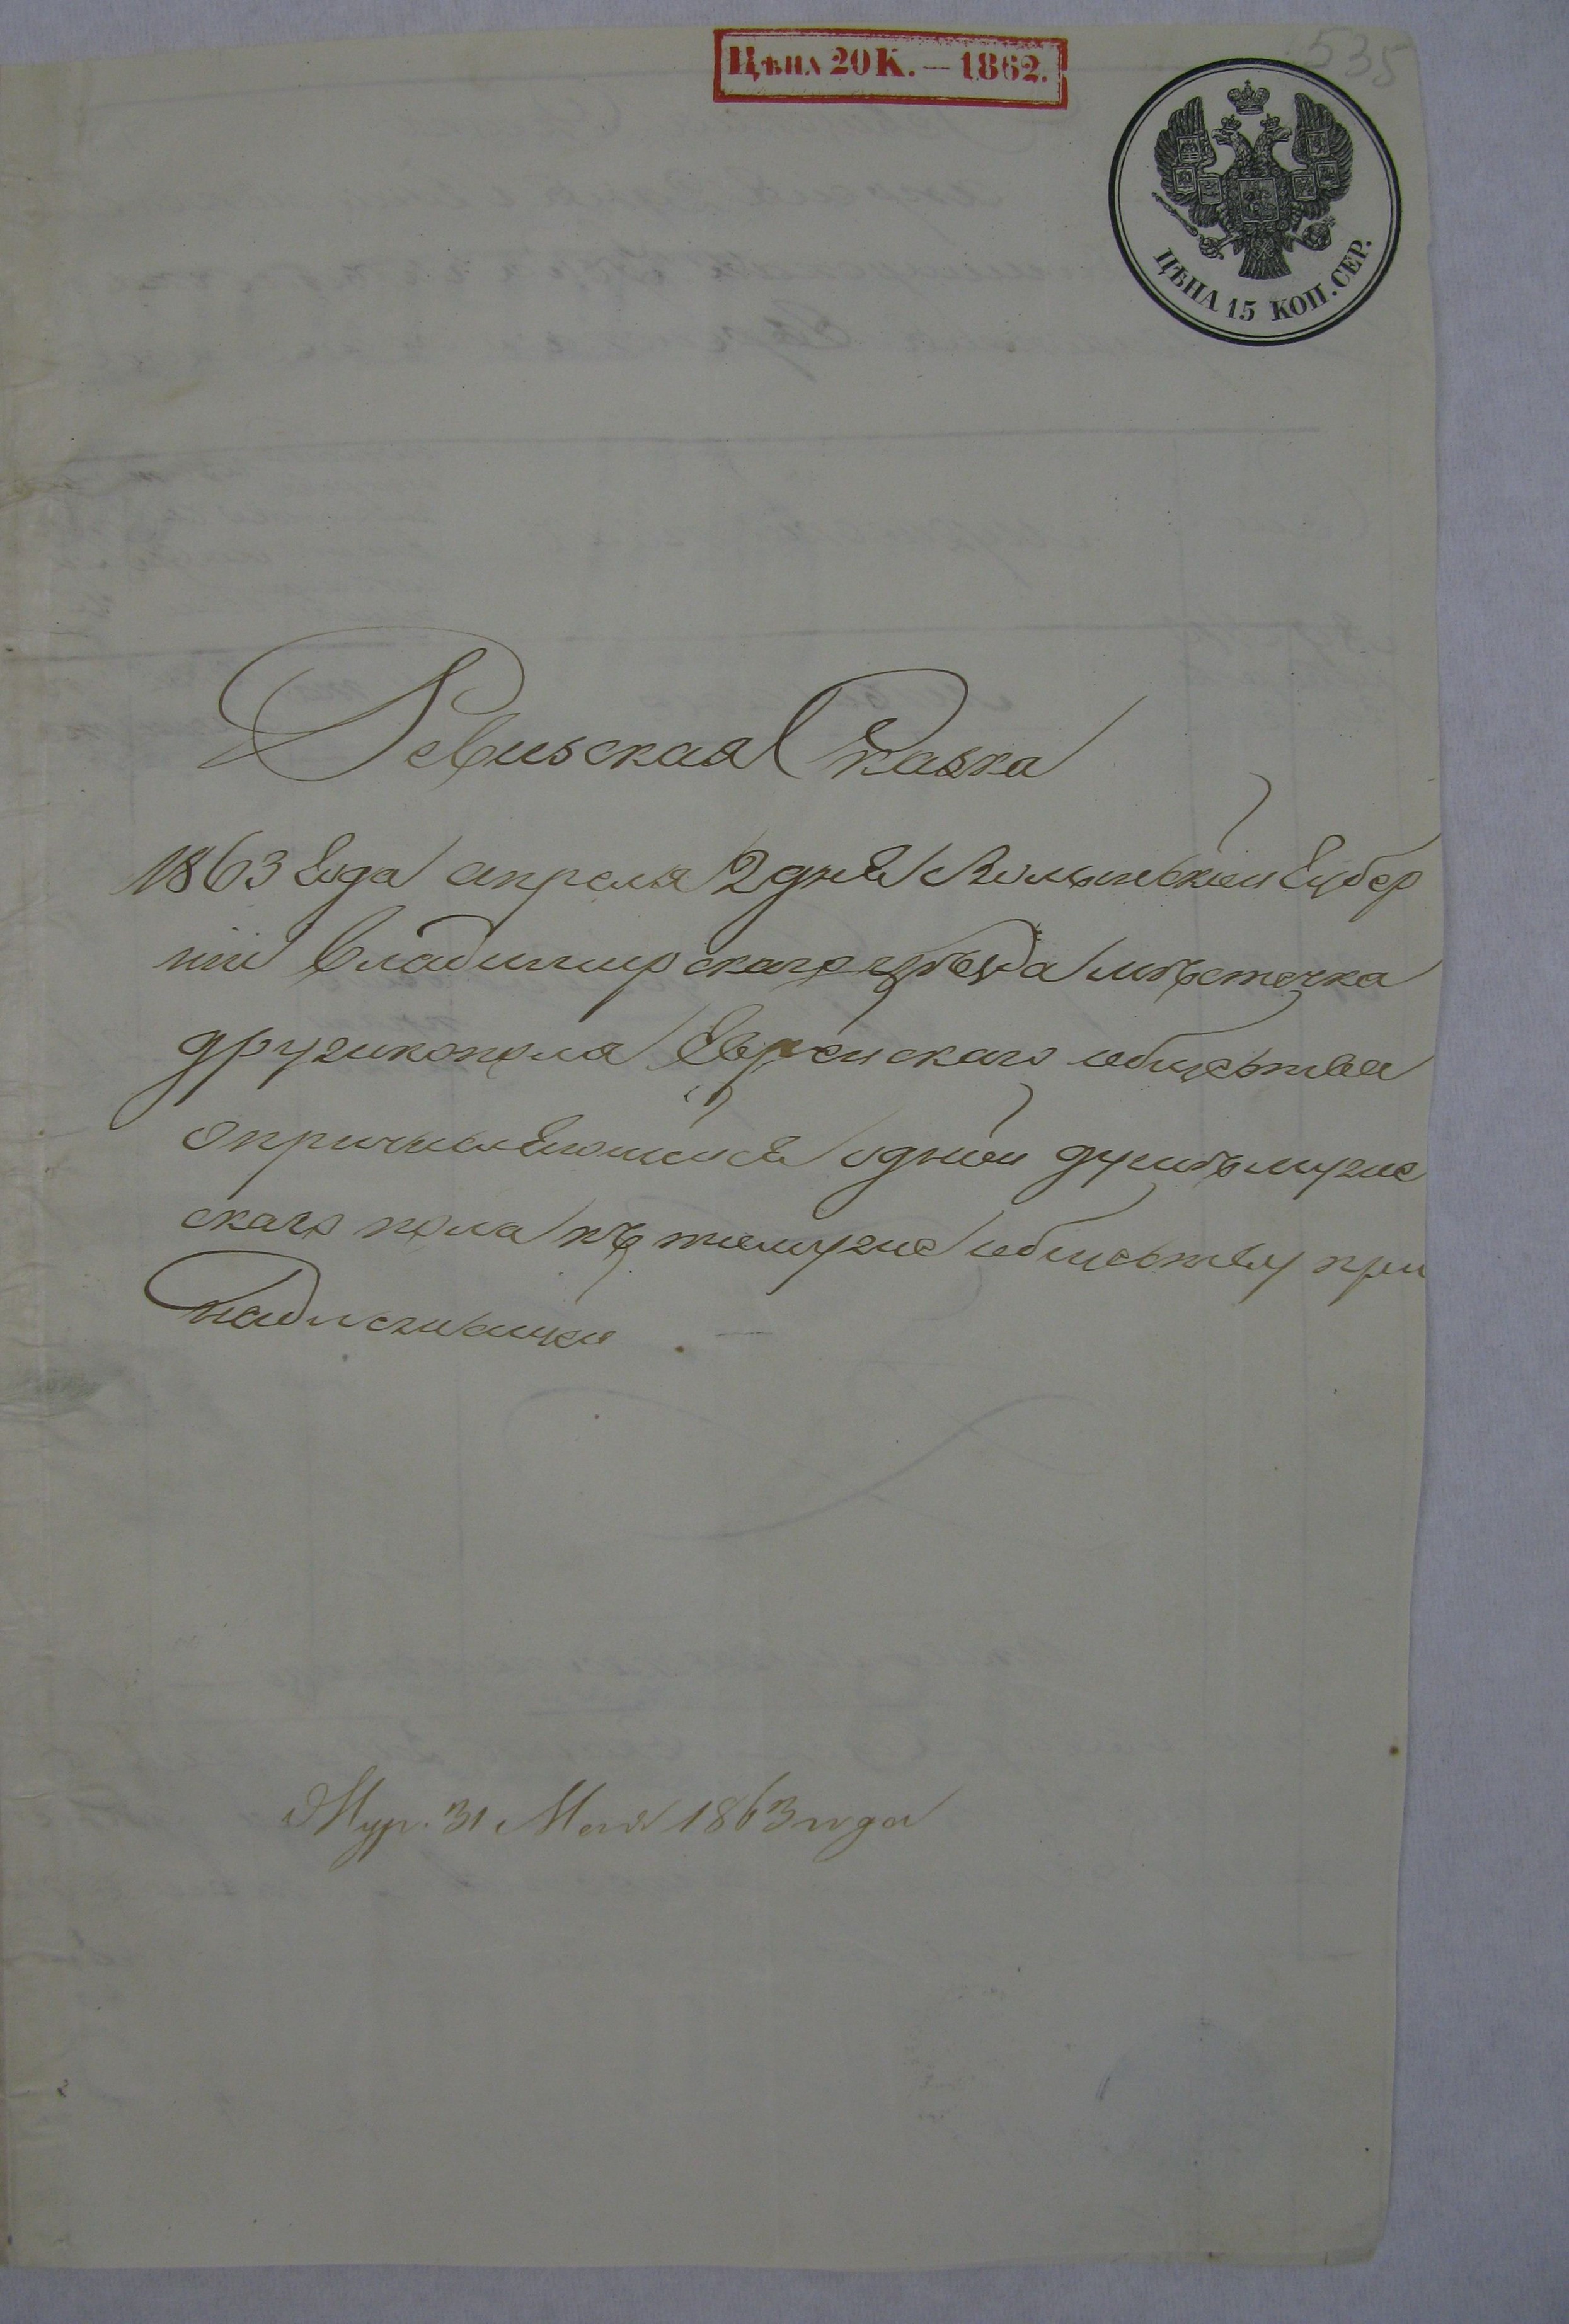 535
Цѣна 20 К. — 1862.
ЦѢНА 15 КОП. СЕР.
Ревиская Скаска
1863 Года апреля 2 дня Волынской Губер
нии Владимирскаго уѣзда мѣстечка
дружкополя Еврейскаго общества
о причисляющейся одной душѣ мужес
скаго пола къ томуже обществу при
надлежащие
31 Мая 1863 года